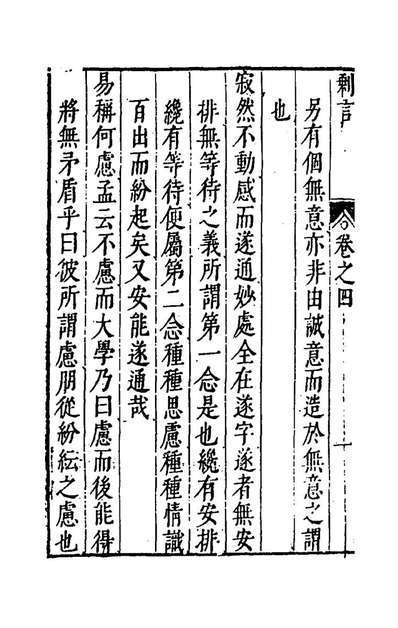 剩言
卷之四
另有個無意亦非由誠意而造於無意之謂
也
寂然不動感而遂通妙處全在遂字遂者無安
排無等待之義所謂第一念是也纔有安排
纔有等待便屬第二念種種思慮種種情識
百出而紛起矣又安能遂通哉
易稱何慮孟云不慮而大學乃曰慮而後能得
將無矛盾乎曰彼所謂慮朋從紛紜之慮也